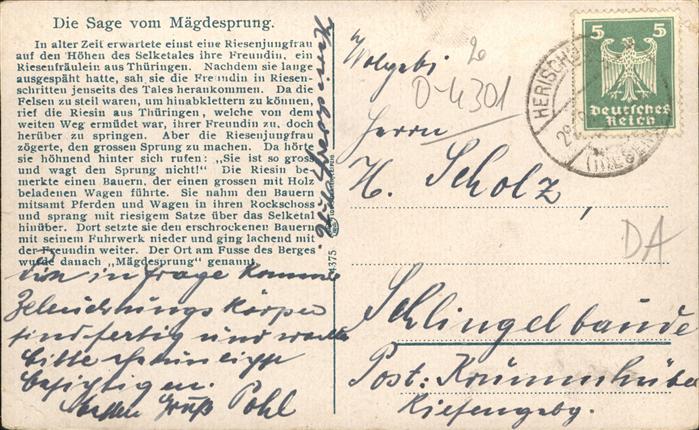 Die Sage vom Mägdesprung.
In alter Zeit erwartete einst eine Riesenjungfrau
auf den Höhen des Selketales ihre Freundin, ein
Riesenfräulein aus Thüringen. Nachdem sie lange
ausgespäht hatte, sah sie die Freundin in Riesen-
schritten jenseits des Tales herankommen. Da die
Felsen zu steil waren, um hinabklettern zu können,
rief die Riesin aus Thüringen, welche von dem
weiten Weg ermüdet war, ihrer Freundin zu, doch
herüber zu springen. Aber die Riesenjungfrau
zögerte, den grossen Sprung zu machen. Da hörte
sie höhnend hinter sich rufen: „Sie ist so gross
und wagt den Sprung nicht!" Die Riesin be-
merkte einen Bauern, der einen grossen mit Holz
beladenen Wagen führte. Sie nahm den Bauern
mitsamt Pferden und Wagen in ihren Rockschoss
und sprang mit riesigem Satze über das Selketal
hinüber. Dort setzte sie den erschrockenen Bauern
mit seinem Fuhrwerk nieder und ging lachend mit
der Freundin weiter. Der Ort am Fusse des Berges
wurde danach „Mägdesprung" genannt.
in Frage
Beleuchtungskörper
sind fertig und
bitte
besichtigen.
Gruß Pohl
4375
5 5
Deutsches
Reich
HERISCH
(RIESENG
20
D-4301
Herrn
H. Scholz,
DA
Schlingelbaude
Post: Krummhübel
Riesengebg.